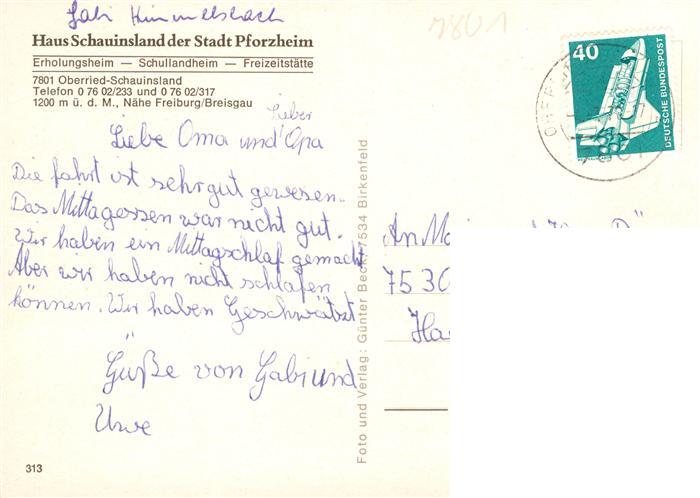 Gabi Himmelsbach
7801
Haus Schauinsland der Stadt Pforzheim
Erholungsheim — Schullandheim — Freizeitstätte
7801 Oberried-Schauinsland
Telefon 0 76 02/233 und 0 76 02/317
1200 m ü. d. M., Nähe Freiburg/Breisgau
Lieber
Liebe Oma und Opa
Die fahrt ist sehr gut gewesen.
Das Mittagessen war nicht gut.
Wir haben ein Mittagschlaf gemacht
Aber wir haben nicht schlafen
können. Wir haben Geschwätzt
Güße von Gabi und
Uwe
313
Foto und Verlag: Günter Beck, 7534 Birkenfeld
40
DEUTSCHE BUNDESPOST
An
7530